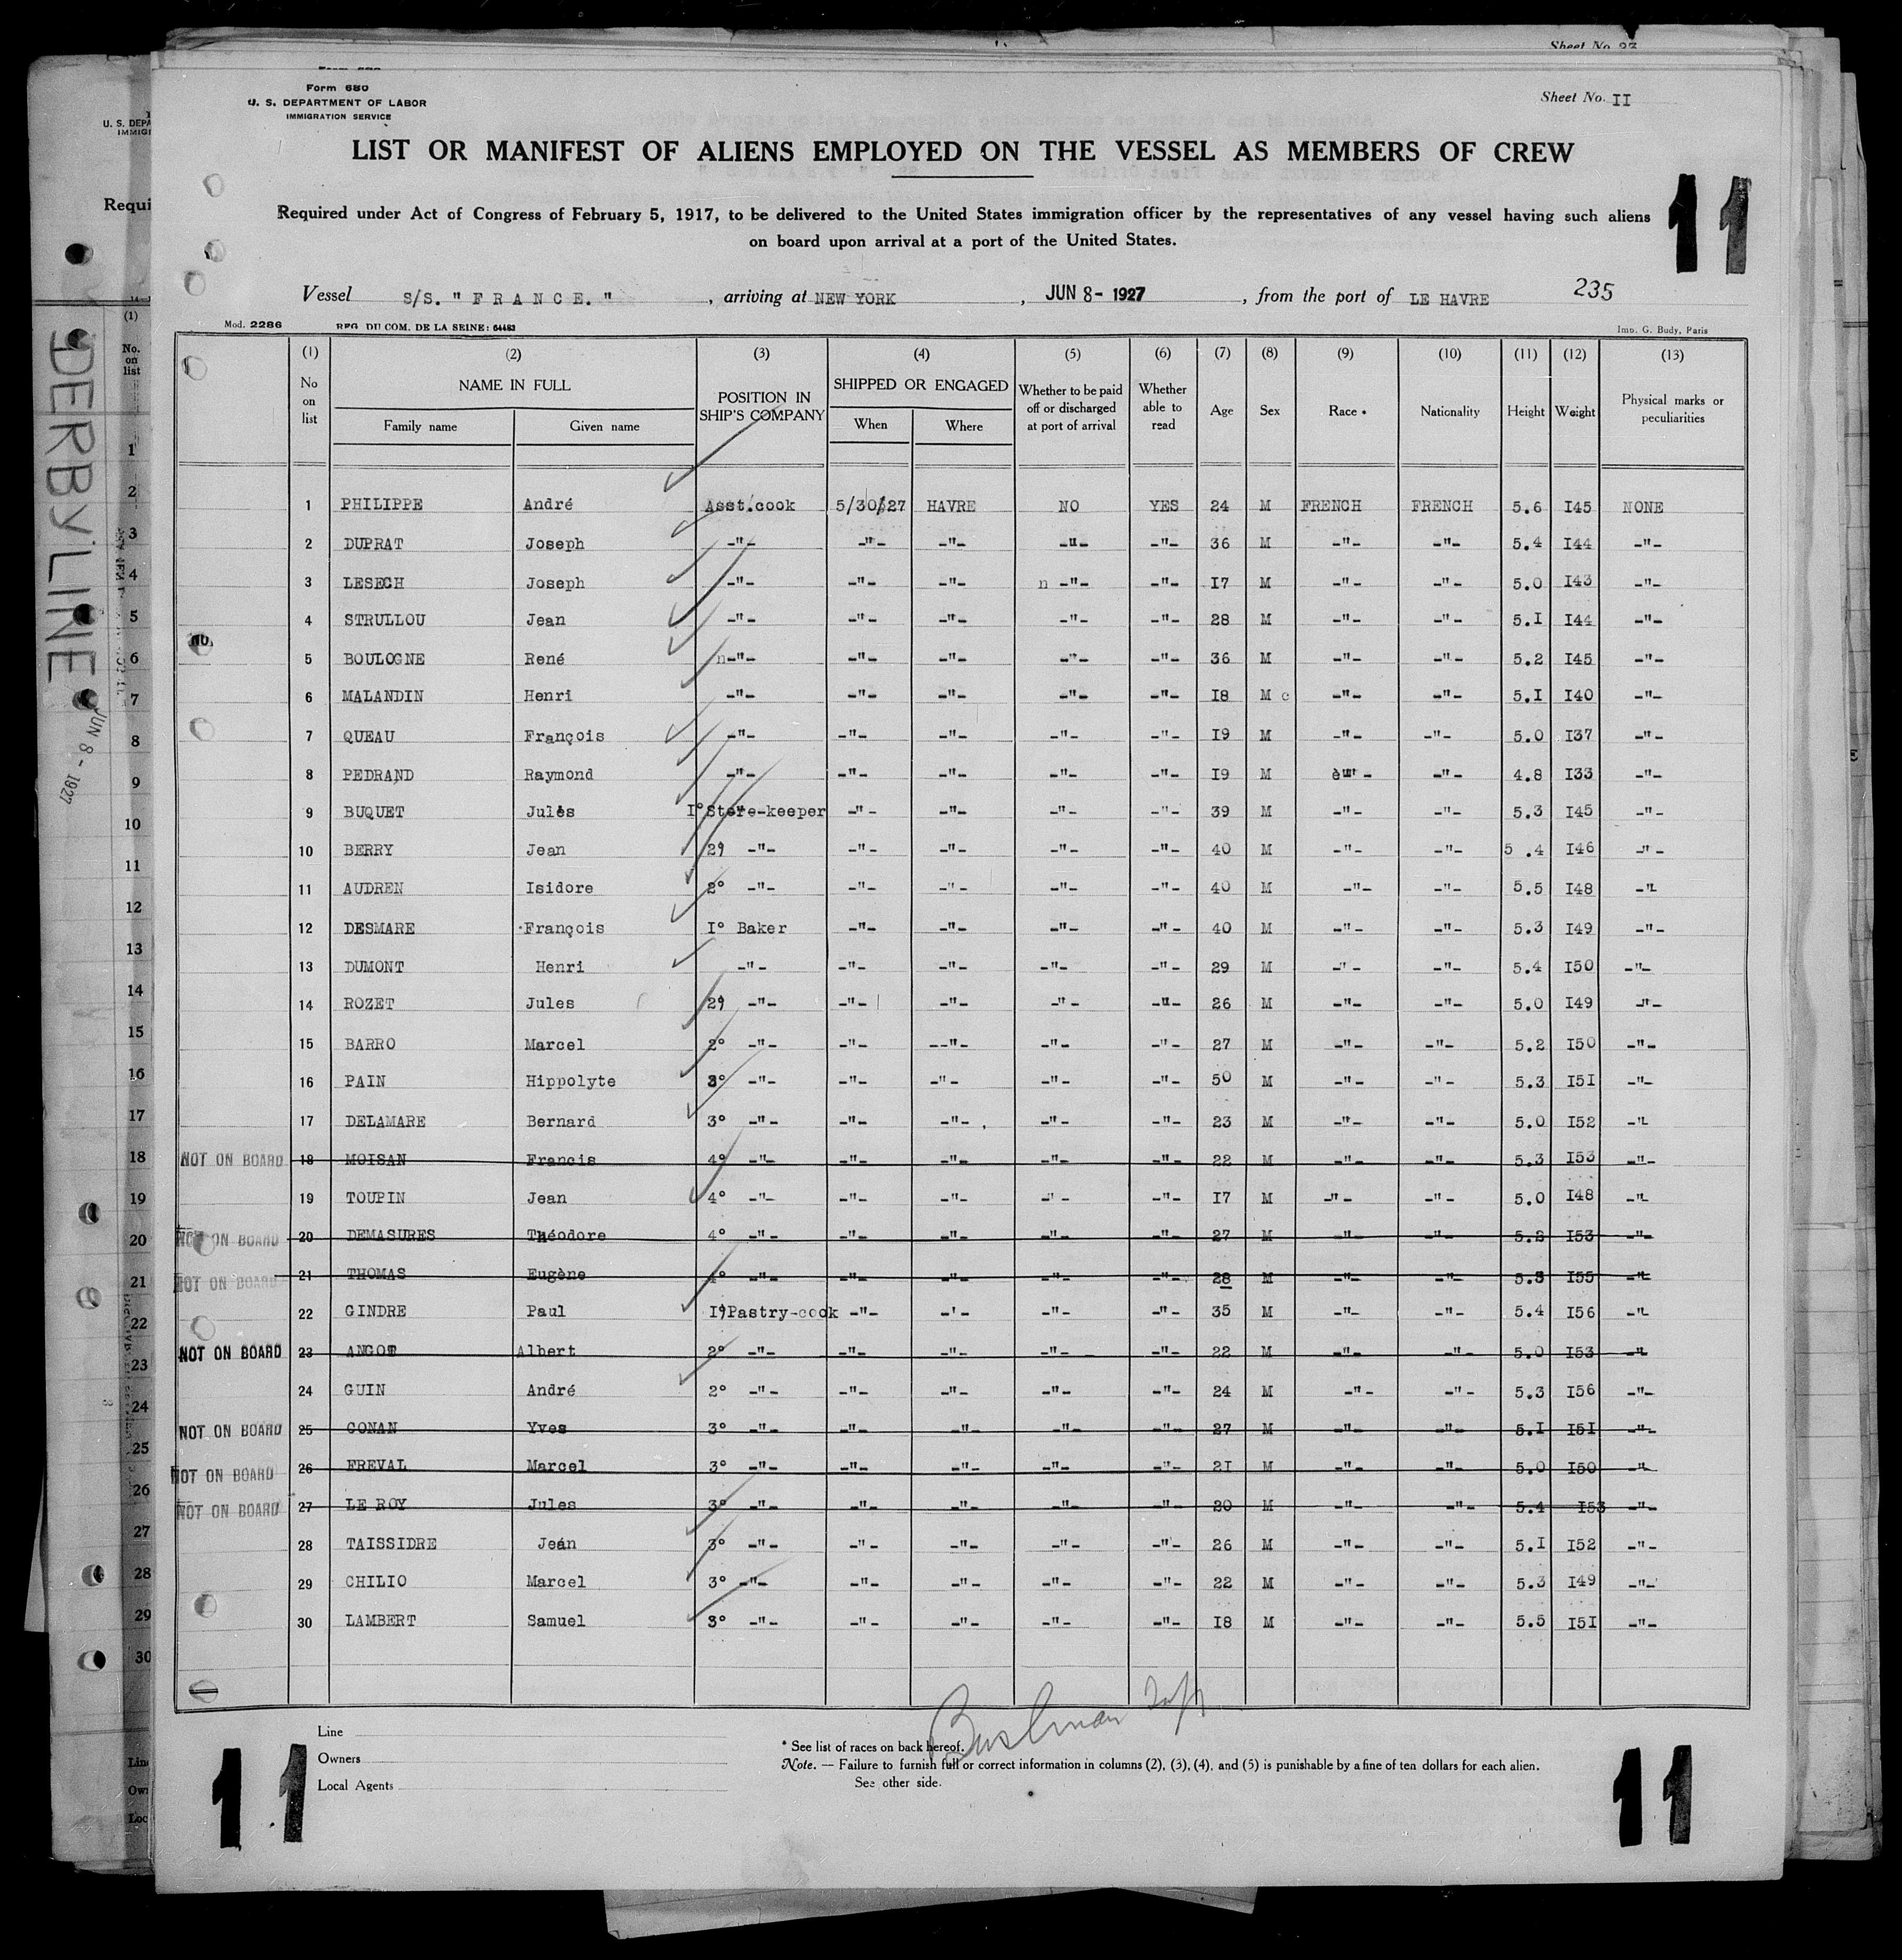 Sheet No. 27
Form 680
U. S. DEPARTMENT OF LABOR
IMMIGRATION SERVICE
Sheet No. II
LIST OR MANIFEST OF ALIENS EMPLOYED ON THE VESSEL AS MEMBERS OF CREW
11
Required under Act of Congress of February 5, 1917, to be delivered to the United States immigration officer by the representatives of any vessel having such aliens
on board upon arrival at a port of the United States.
Vessel S/S. "FRANCE." , arriving at NEW YORK , JUN 8- 1927 , from the port of LE HAVRE 235
Mod. 2286 REG. DU COM. DE LA SEINE: 64483 Imp. G. Budy, Paris
(1) (2) (3) (4) (5) (6) (7) (8) (9) (10) (11) (12) (13)
No on list NAME IN FULL Family name Given name POSITION IN SHIP'S COMPANY SHIPPED OR ENGAGED When Where Whether to be paid off or discharged at port of arrival Whether able to read Age Sex Race * Nationality Height Weight Physical marks or peculiarities
1 PHILIPPE André Asst.cook 5/30/27 HAVRE NO YES 24 M FRENCH FRENCH 5.6 I45 NONE
2 DUPRAT Joseph -"- -"- -"- -"- -"- 36 M -"- -"- 5.4 I44 -"-
3 LESECH Joseph -"- -"- -"- n -"- -"- I7 M -"- -"- 5.0 I43 -"-
4 STRULLOU Jean -"- -"- -"- -"- -"- 28 M -"- -"- 5.I I44 -"-
5 BOULOGNE René n-"- -"- -"- -"- -"- 36 M -"- -"- 5.2 I45 -"-
6 MALANDIN Henri -"- -"- -"- -"- -"- I8 M c -"- -"- 5.I I40 -"-
7 QUEAU François -"- -"- -"- -"- -"- I9 M -"- -"- 5.0 I37 -"-
8 PEDRAND Raymond -"- -"- -"- -"- -"- I9 M -"- -"- 4.8 I33 -"-
9 BUQUET Jules I° Store-keeper -"- -"- -"- -"- 39 M -"- -"- 5.3 I45 -"-
10 BERRY Jean 2° -"- -"- -"- -"- -"- 40 M -"- -"- 5 .4 I46 -"-
11 AUDREN Isidore 2° -"- -"- -"- -"- -"- 40 M -"- -"- 5.5 I48 -"-
12 DESMARE François I° Baker -"- -"- -"- -"- 40 M -"- -"- 5.3 I49 -"-
13 DUMONT Henri -"- -"- -"- -"- -"- 29 M -"- -"- 5.4 I50 -"-
14 ROZET Jules 2° -"- -"- -"- -"- -"- 26 M -"- -"- 5.0 I49 -"-
15 BARRO Marcel 2° -"- -"- --"- -"- -"- 27 M -"- -"- 5.2 I50 -"-
16 PAIN Hippolyte 3° -"- -"- -"- -"- -"- 50 M -"- -"- 5.3 I5I -"-
17 DELAMARE Bernard 3° -"- -"- -"- -"- -"- 23 M -"- -"- 5.0 I52 -"-
NOT ON BOARD 18 MOISAN Francis 4° -"- -"- -"- -"- -"- 22 M -"- -"- 5.3 I53 -"-
19 TOUPIN Jean 4° -"- -"- -"- -"- -"- I7 M -"- -"- 5.0 I48 -"-
NOT ON BOARD 20 DEMASURES Théodore 4° -"- -"- -"- -"- -"- 27 M -"- -"- 5.2 I53 -"-
NOT ON BOARD 21 THOMAS Eugène 4° -"- -"- -"- -"- -"- 28 M -"- -"- 5.3 I55 -"-
22 GINDRE Paul I° Pastry-cook -"- -"- -"- -"- 35 M -"- -"- 5.4 I56 -"-
NOT ON BOARD 23 ANGOT Albert 2° -"- -"- -"- -"- -"- 22 M -"- -"- 5.0 I53 -"-
24 GUIN André 2° -"- -"- -"- -"- -"- 24 M -"- -"- 5.3 I56 -"-
NOT ON BOARD 25 CONAN Yves 3° -"- -"- -"- -"- -"- 27 M -"- -"- 5.I I5I -"-
NOT ON BOARD 26 FREVAL Marcel 3° -"- -"- -"- -"- -"- 2I M -"- -"- 5.0 I50 -"-
NOT ON BOARD 27 LE ROY Jules 3° -"- -"- -"- -"- -"- 20 M -"- -"- 5.4 I53 -"-
28 TAISSIDRE Jean 3° -"- -"- -"- -"- -"- 26 M -"- -"- 5.I I52 -"-
29 CHILIO Marcel 3° -"- -"- -"- -"- -"- 22 M -"- -"- 5.3 I49 -"-
30 LAMBERT Samuel 3° -"- -"- -"- -"- -"- I8 M -"- -"- 5.5 I5I -"-
Line
Owners
Local Agents
* See list of races on back hereof.
Note. — Failure to furnish full or correct information in columns (2), (3), (4), and (5) is punishable by a fine of ten dollars for each alien.
See other side.
11
11
DERBY LINE
JUN 8 - 1927